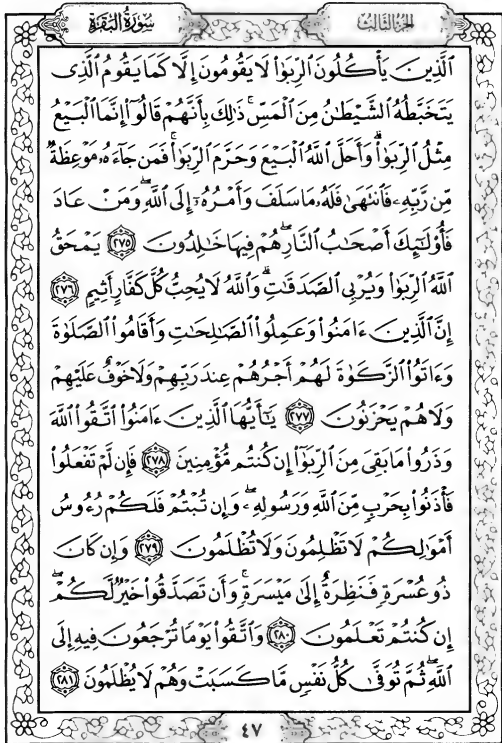 سُورَةُ البَقَرَةِ
الجزء الثالث
ٱلَّذِينَ يَأْكُلُونَ ٱلرِّبَوٰا۟ لَا يَقُومُونَ إِلَّا كَمَا يَقُومُ ٱلَّذِى
يَتَخَبَّطُهُ ٱلشَّيْطَٰنُ مِنَ ٱلْمَسِّ ۚ ذَٰلِكَ بِأَنَّهُمْ قَالُوٓا۟ إِنَّمَا ٱلْبَيْعُ
مِثْلُ ٱلرِّبَوٰا۟ ۗ وَأَحَلَّ ٱللَّهُ ٱلْبَيْعَ وَحَرَّمَ ٱلرِّبَوٰا۟ ۚ فَمَن جَآءَهُۥ مَوْعِظَةٌ
مِّن رَّبِّهِۦ فَٱنتَهَىٰ فَلَهُۥ مَا سَلَفَ وَأَمْرُهُۥٓ إِلَى ٱللَّهِ ۖ وَمَنْ عَادَ
فَأُو۟لَٰٓئِكَ أَصْحَٰبُ ٱلنَّارِ ۖ هُمْ فِيهَا خَٰلِدُونَ ٢٧٥ يَمْحَقُ
ٱللَّهُ ٱلرِّبَوٰا۟ وَيُرْبِى ٱلصَّدَقَٰتِ ۗ وَٱللَّهُ لَا يُحِبُّ كُلَّ كَفَّارٍ أَثِيمٍ ٢٧٦
إِنَّ ٱلَّذِينَ ءَامَنُوا۟ وَعَمِلُوا۟ ٱلصَّٰلِحَٰتِ وَأَقَامُوا۟ ٱلصَّلَوٰةَ
وَءَاتَوُا۟ ٱلزَّكَوٰةَ لَهُمْ أَجْرُهُمْ عِندَ رَبِّهِمْ وَلَا خَوْفٌ عَلَيْهِمْ
وَلَا هُمْ يَحْزَنُونَ ٢٧٧ يَٰٓأَيُّهَا ٱلَّذِينَ ءَامَنُوا۟ ٱتَّقُوا۟ ٱللَّهَ
وَذَرُوا۟ مَا بَقِىَ مِنَ ٱلرِّبَوٰٓا۟ إِن كُنتُم مُّؤْمِنِينَ ٢٧٨ فَإِن لَّمْ تَفْعَلُوا۟
فَأْذَنُوا۟ بِحَرْبٍ مِّنَ ٱللَّهِ وَرَسُولِهِۦ ۖ وَإِن تُبْتُمْ فَلَكُمْ رُءُوسُ
أَمْوَٰلِكُمْ لَا تَظْلِمُونَ وَلَا تُظْلَمُونَ ٢٧٩ وَإِن كَانَ
ذُو عُسْرَةٍ فَنَظِرَةٌ إِلَىٰ مَيْسَرَةٍ ۚ وَأَن تَصَدَّقُوا۟ خَيْرٌ لَّكُمْ ۖ
إِن كُنتُمْ تَعْلَمُونَ ٢٨٠ وَٱتَّقُوا۟ يَوْمًا تُرْجَعُونَ فِيهِ إِلَى
ٱللَّهِ ۖ ثُمَّ تُوَفَّىٰ كُلُّ نَفْسٍ مَّا كَسَبَتْ وَهُمْ لَا يُظْلَمُونَ ٢٨١
٤٧